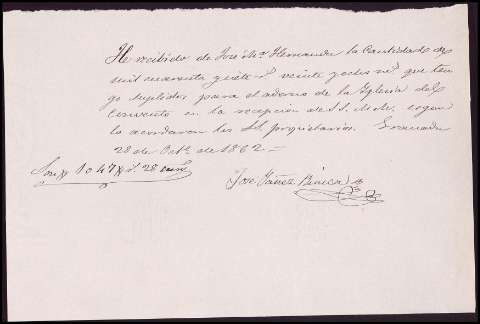 He recibido de José Mª. Hernandez la Cantidad de
mil cuarenta y siete rs. veinte y ocho ms. que ten
go suplidos para el adorno de la Yglesia del
Convento en la recepcion de SS. M.M. segun
lo acordaron los SS. propietarios. Granada
28 de Octe. de 1862 =
Son 1047 rs. 28 cms.
Jose Yañez